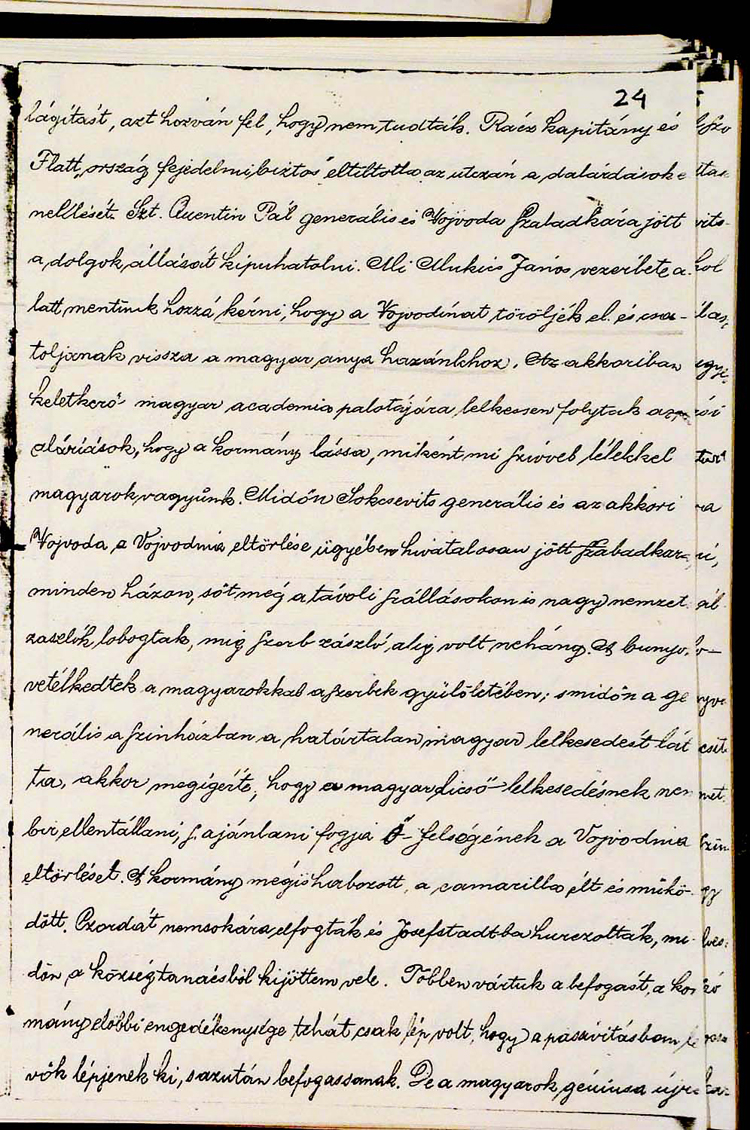 24
lágítást, azt hozván fel, hogy nem tudták. Rácz kapitány és
Flatt „ország fejedelmi biztos" eltiltotta az utczán a dalárdások é
neklését. Szt. Quentin Pál generális és Vojvoda Szabadkára jött
a dolgok állását kipuhatolni. Mi Mukics János vezérlete a-
latt mentünk hozzá kérni, hogy a Vojvodinát töröljék el és csa-
toljanak vissza a magyar anya hazánkhoz. Az akkoriban
keletkező magyar academia palotájára lelkessen folytak az
aláriások, hogy a kormány lássa, miként mi szivvel lélekkel
magyarok vagyünk. Midőn Sokcsevits generális és az akkori
Vojvoda a Vojvodnia eltörlése ügyében hivatalosan jött Szabadkára
minden házon, sőt még a távoli szállásokon is nagy nemzeti
zaszlók lobogtak, mig szerb zászló alig volt néhány. A bunyo
vetélkedtek a magyarokkal a szerbek gyülöletében; s midőn a ge
nerális a szinházban a határtalan magyar lelkesedést lát
ta, akkor megigérte, hogy a magyar dicső lelkesedésnek nem
bir ellentállani, s ajánlani fogja Ő-felségének a Vojvodnia
eltörlését. A kormány megis habozott, a camarilla élt és műkö-
dött. Czordát nemsokára elfogták és Josefstadtba hurczolták, mi-
dőn a községtanácsból kijöttem vele. Többen vártuk a befogást, a kor
mány előbbi engedékenysége tehát csak lép volt, hogy a passivitásban l
vők lépjenek ki, s azután befogassanak. De a magyarok géniusa újra